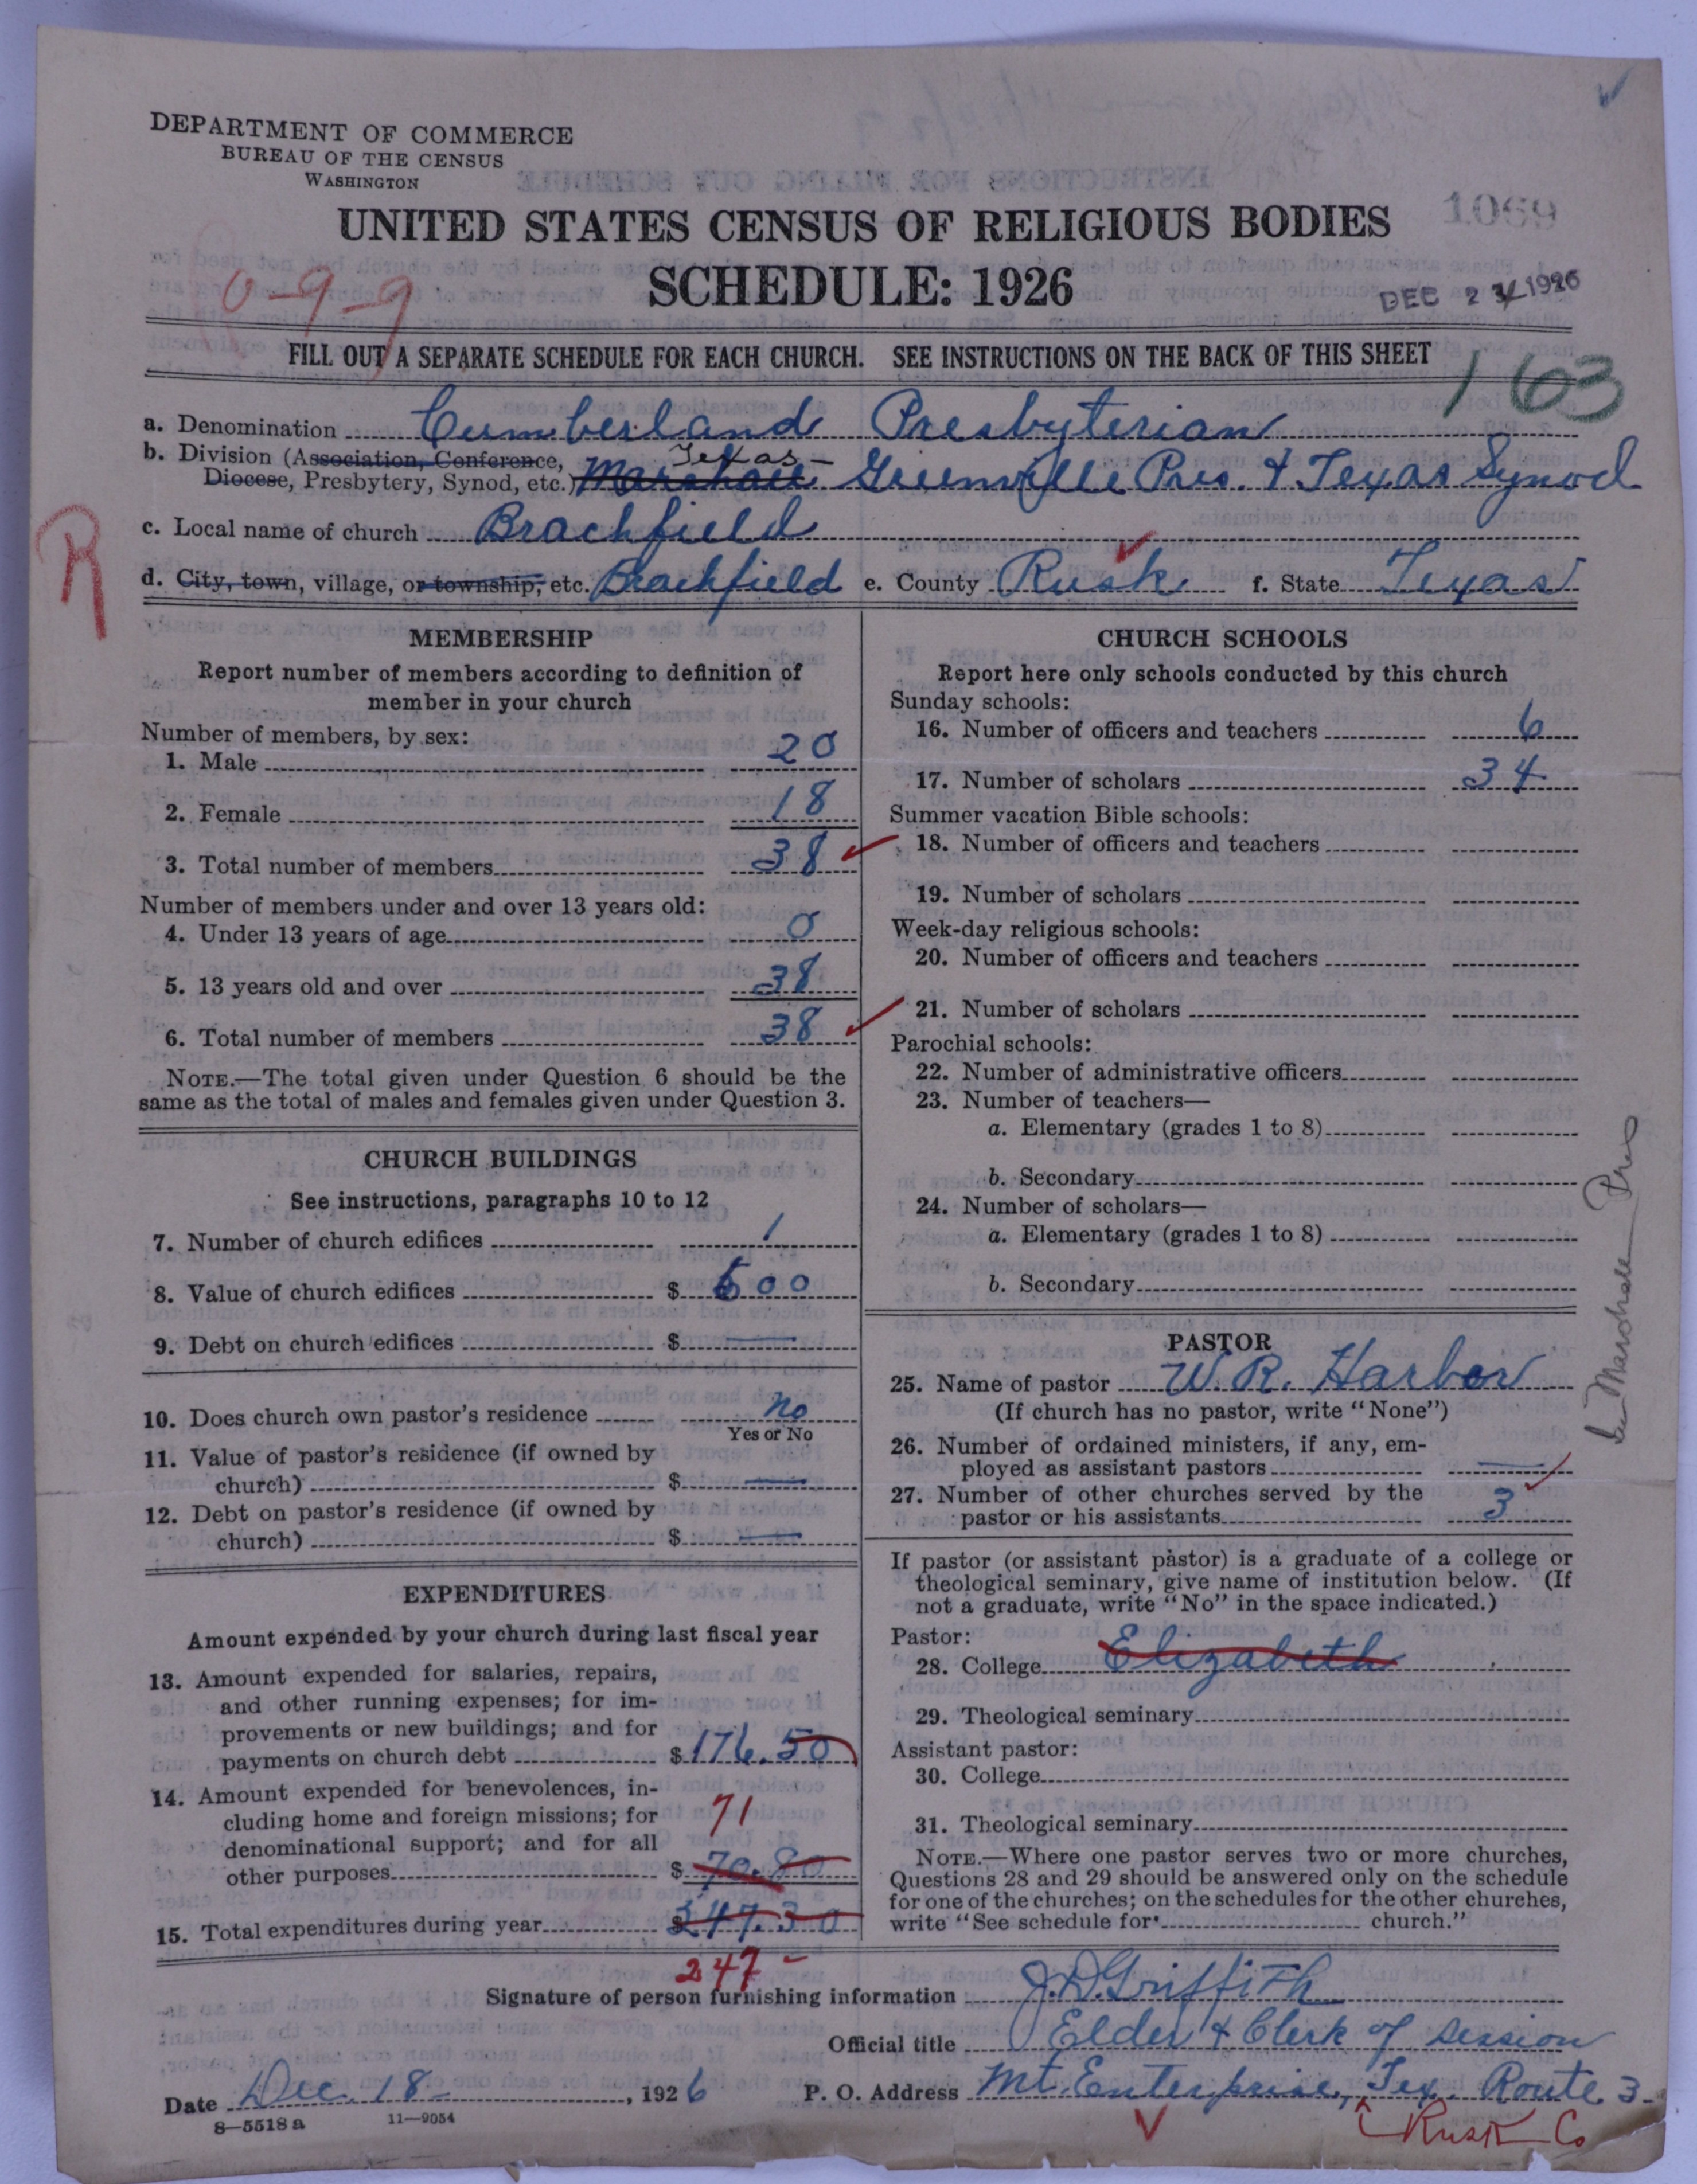 DEPARTMENT OF COMMERCE
BUREAU OF THE CENSUS
WASHINGTON
UNITED STATES CENSUS OF RELIGIOUS BODIES
1069
SCHEDULE: 1926
0-9-9
DEC 23 1926
FILL OUT A SEPARATE SCHEDULE FOR EACH CHURCH. SEE INSTRUCTIONS ON THE BACK OF THIS SHEET
163
a. Denomination Cumberland Presbyterian
b. Division (Association, Conference, Texas
Diocese, Presbytery, Synod, etc.) Marshall Greenville Pres. & Texas Synod
c. Local name of church Brachfield
R
d. City, town, village, or township, etc. Brachfield e. County Rusk f. State Texas
MEMBERSHIP
Report number of members according to definition of
member in your church
Number of members, by sex:
1. Male 20
2. Female 18
3. Total number of members 38
Number of members under and over 13 years old:
4. Under 13 years of age 0
5. 13 years old and over 38
6. Total number of members 38
NOTE.—The total given under Question 6 should be the
same as the total of males and females given under Question 3.
CHURCH BUILDINGS
See instructions, paragraphs 10 to 12
7. Number of church edifices 1
8. Value of church edifices $ 600
9. Debt on church edifices $ —
10. Does church own pastor's residence no
Yes or No
11. Value of pastor's residence (if owned by
church) $ —
12. Debt on pastor's residence (if owned by
church) $ —
EXPENDITURES
Amount expended by your church during last fiscal year
13. Amount expended for salaries, repairs,
and other running expenses; for im-
provements or new buildings; and for
payments on church debt $ 176.50
14. Amount expended for benevolences, in-
cluding home and foreign missions; for 71
denominational support; and for all
other purposes $ 70.80
15. Total expenditures during year $ 247.30
247-
CHURCH SCHOOLS
Report here only schools conducted by this church
Sunday schools:
16. Number of officers and teachers 6
17. Number of scholars 34
Summer vacation Bible schools:
18. Number of officers and teachers
19. Number of scholars
Week-day religious schools:
20. Number of officers and teachers
21. Number of scholars
Parochial schools:
22. Number of administrative officers
23. Number of teachers—
a. Elementary (grades 1 to 8)
b. Secondary
24. Number of scholars—
a. Elementary (grades 1 to 8)
b. Secondary
PASTOR
25. Name of pastor W. R. Harbor
(If church has no pastor, write "None")
26. Number of ordained ministers, if any, em-
ployed as assistant pastors —
27. Number of other churches served by the
pastor or his assistants 3
If pastor (or assistant pastor) is a graduate of a college or
theological seminary, give name of institution below. (If
not a graduate, write "No" in the space indicated.)
Pastor:
28. College Elizabeth
29. Theological seminary
Assistant pastor:
30. College
31. Theological seminary
NOTE.—Where one pastor serves two or more churches,
Questions 28 and 29 should be answered only on the schedule
for one of the churches; on the schedules for the other churches,
write "See schedule for church."
Marshall Pres
Signature of person furnishing information J. D. Griffith
Official title Elder & Clerk of Session
Date Dec. 18- , 1926 P. O. Address Mt. Enterprise, Tex. Route 3-
8—5518 a 11—9054
Rusk Co